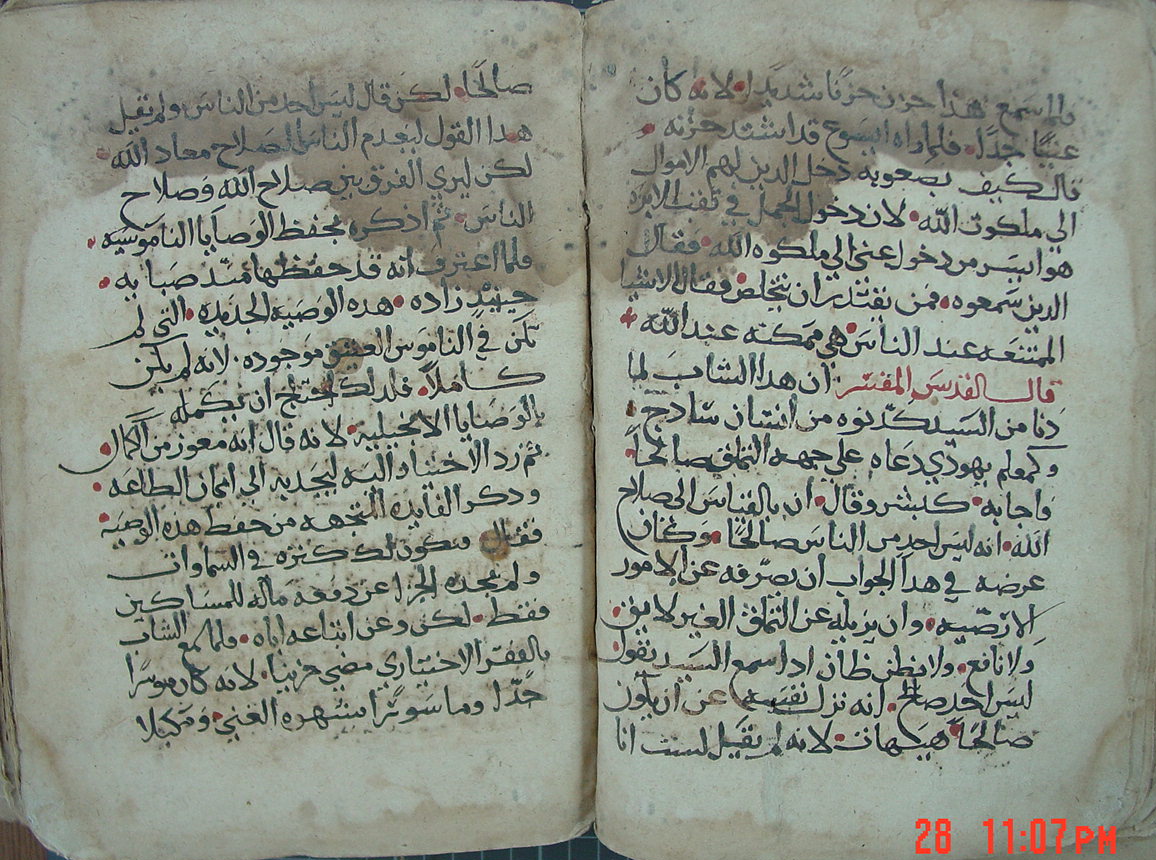 ولما سمع هذا حزن حزنا شديدا لانه كان
غنيا جدا فلما راه ايسوع قد اشتد حزنه
قال كيف بصعوبه دخل الدين لهم الاموال
الي ملكوت الله لان دخول الجمل في ثقب الابره
هو ايسر من دخول غني الي ملكوه الله فقال
الدين سمعوه فمن يقتدر ان يتخلص فقال الاشيا
الممتنعه عند الناس هي ممكنه عند الله
قال القدس المفسر ان هدا الشاب لما
دنا من السيد كدنوه من انسان سادج
وكمعلم يهودي دعاه علي جهه التملق صالحاً
فاجابه كبشر وقال ان بالقياس الي صلاح
الله انه ليس احد من الناس صالحًا وكان
غرضه في هدا الجواب ان يصرفه عن الامور
الارضيه وان يزيله عن التملق الغير لايق
ولا نافع ولا يظن ظان ادا سمع السيد يقول
ليس احد صالح انه نزل نفسه عن ان يكون
صالحاً هيهات لانه لم يقيل لست انا
صالحًا لكن قال ليس احد من الناس ولم يقيل
هدا القول ليعدم الناس الصلاح معاد الله
لكن ليري الفرق بين صلاح الله وصلاح
الناس ثم ادكره بحفظ الوصايا الناموسيه
فلما اعترف انه قد حفظها منذ صبايه
حينيد زاده هده الوصيه الجديده التي لم
تكن في الناموس العتيق موجوده لانه لم يكن
كاملاً فلدلك احتاج ان يكمله
بالوصايا الانجيلية لانه قال انه معوز من الكمال
ثم رد الاختيار اليه ليجدبه الي ايمان الطاعه
ودكر الفايده المتجهه من حفظ هده الوصيه
فقال فيكون لك كنزه في السماوات
ولم يعده الجزا عن دفعه ماله للمساكين
فقط لكن وعن اتباعه اياه فلما سمع الشاب
بالفقر الاختياري مضي حزينا لانه كان موسرًا
جدًا وماسورًا بشهوه الغني ومكبلا
28 11:07PM